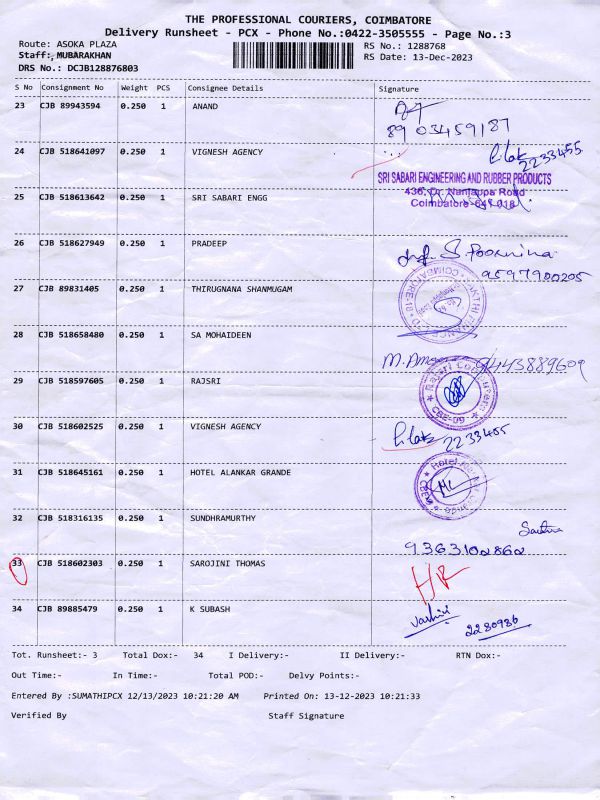 THE PROFESSIONAL COURIERS, COIMBATORE
Delivery Runsheet - PCX - Phone No.:0422-3505555 - Page No.:3
Route: ASOKA PLAZA RS No.: 1288768
Staff: MUBARAKHAN RS Date: 13-Dec-2023
DRS No.: DCJB128876803
S No Consignment No Weight PCS Consignee Details Signature
23 CJB 89943594 0.250 1 ANAND
8903459187
24 CJB 518641097 0.250 1 VIGNESH AGENCY
2233455
SRI SABARI ENGINEERING AND RUBBER PRODUCTS
25 CJB 518613642 0.250 1 SRI SABARI ENGG
436, Dr. Nanjappa Road
Coimbatore-641 018
26 CJB 518627949 0.250 1 PRADEEP
S. Poornima
9597900205
27 CJB 89831405 0.250 1 THIRUGNANA SHANMUGAM
28 CJB 518658480 0.250 1 SA MOHAIDEEN
9443889609
29 CJB 518597605 0.250 1 RAJSRI
CBE-09
30 CJB 518602525 0.250 1 VIGNESH AGENCY
2233455
31 CJB 518645161 0.250 1 HOTEL ALANKAR GRANDE
Hotel
32 CJB 518316135 0.250 1 SUNDHRAMURTHY
9363102862
33 CJB 518602303 0.250 1 SAROJINI THOMAS
34 CJB 89885479 0.250 1 K SUBASH
2280986
Tot. Runsheet:- 3 Total Dox:- 34 I Delivery:- II Delivery:- RTN Dox:-
Out Time:- In Time:- Total POD:- Delvy Points:-
Entered By :SUMATHIPCX 12/13/2023 10:21:20 AM Printed On: 13-12-2023 10:21:33
Verified By Staff Signature